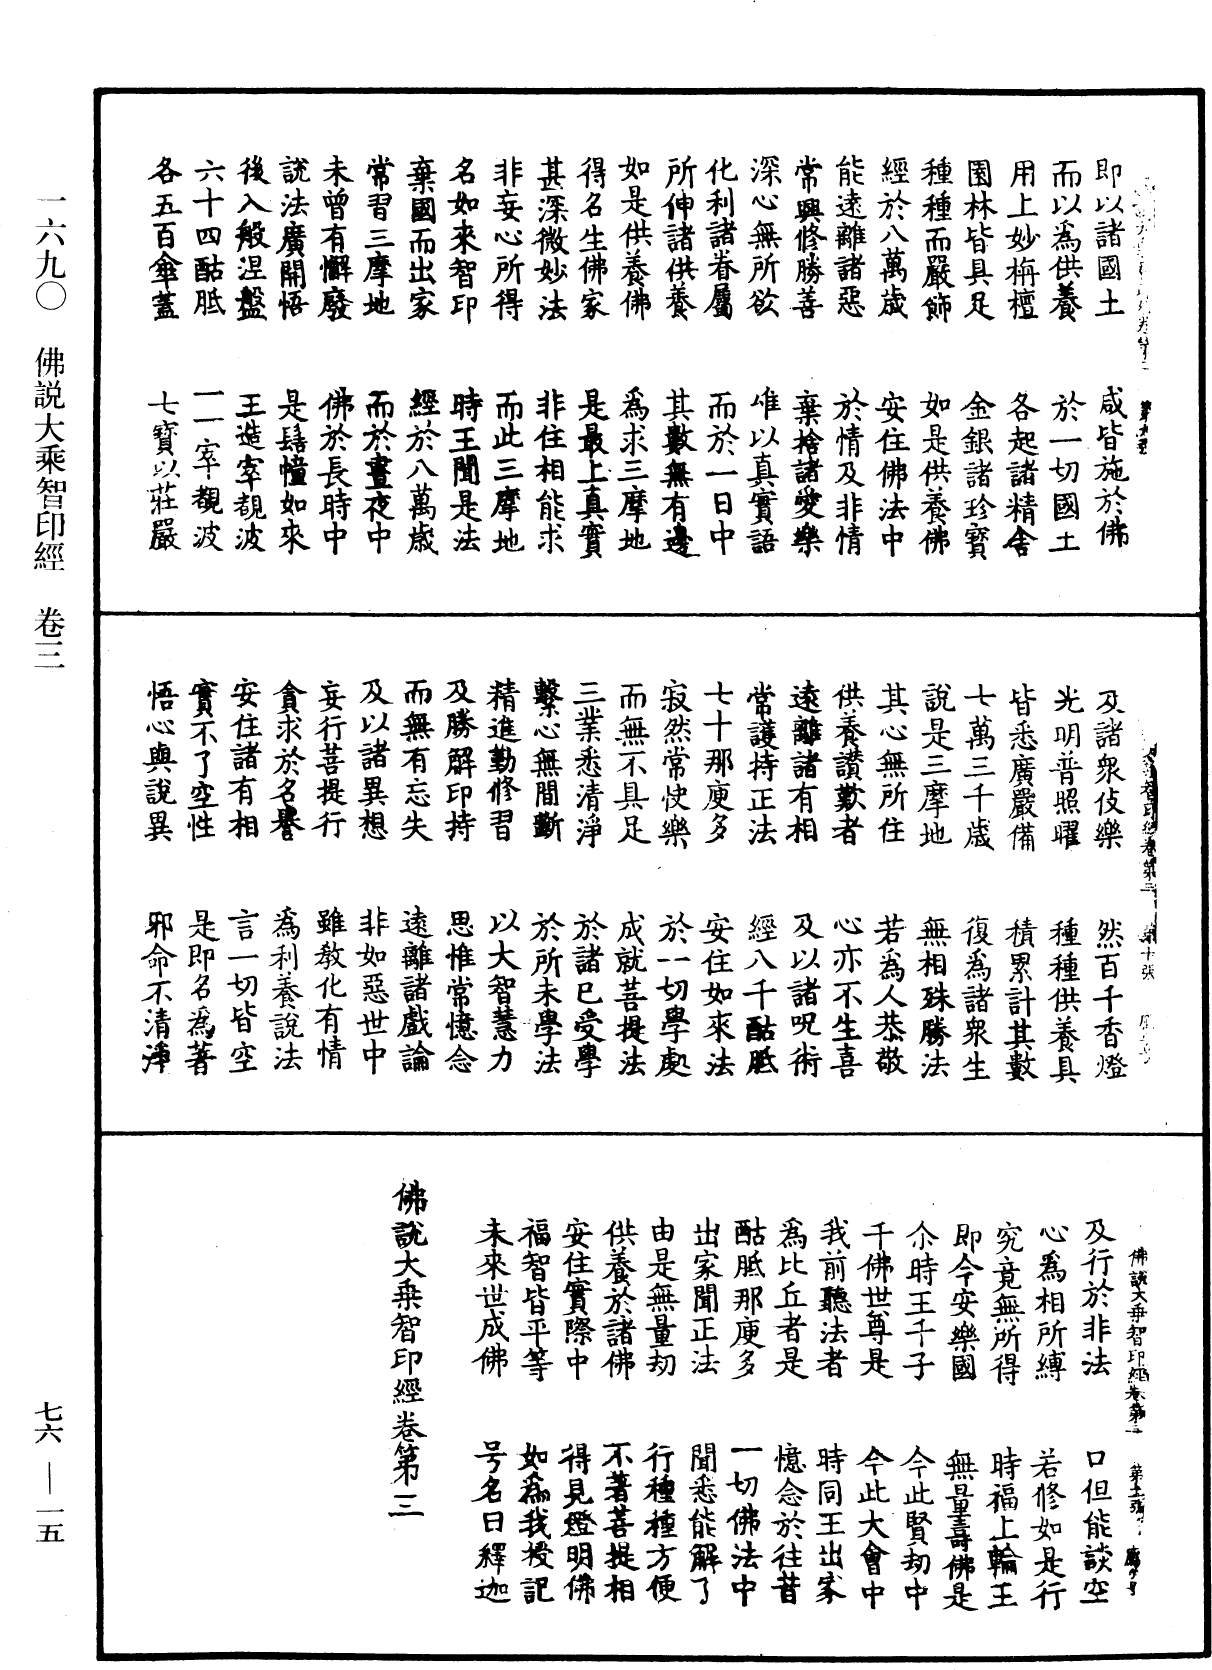 一六九〇 佛説大乘智印經 卷三
七六 — 一五
即以諸國土 咸皆施於佛
而以為供養 於一切國土
用上妙栴檀 各起諸精舍
園林皆具足 金銀諸珍寳
種種而嚴飾 如是供養佛
經於八萬歲 安住佛法中
能遠離諸惡 於情及非情
常興修勝善 棄捨諸愛樂
深心無所欲 唯以真實語
化利諸眷屬 而於一日中
所伸諸供養 其數無有邊
如是供養佛 為求三摩地
得名生佛家 是最上真實
甚深微妙法 非住相能求
非妄心所得 而此三摩地
名如來智印 時王聞是法
棄國而出家 經於八萬歲
常習三摩地 而於晝夜中
未曾有懈廢 佛於長時中
說法廣開悟 是髻幢如來
後入般涅盤 王造窣覩波
六十四酤胝 一一窣覩波
各五百傘蓋 七寳以莊嚴
及諸衆伎樂 然百千香燈
光明普照曜 種種供養具
皆悉廣嚴備 積累計其數
七萬三千歲 復為諸衆生
說是三摩地 無相殊勝法
其心無所住 若為人恭敬
供養讃歎者 心亦不生喜
遠離諸有相 及以諸呪術
常護持正法 經八千酤胝
七十那庾多 安住如來法
寂然常快樂 於一切學處
而無不具足 成就菩提法
三業悉清淨 於諸已受學
繫心無間斷 於所未學法
精進勤修習 以大智慧力
及勝解印持 思惟常憶念
而無有忘失 遠離諸戲論
及以諸異想 非如惡世中
妄行菩提行 雖教化有情
貪求於名譽 為利養說法
安住諸有相 言一切皆空
實不了空性 是即名為著
悟心與說異 邪命不清淨
佛說大乘智印經卷第三
及行於非法 口但能談空
心為相所縛 若修如是行
究竟無所得 時福上輪王
即今安樂國 無量壽佛是
尒時王千子 今此賢劫中
千佛世尊是 今此大會中
我前聽法者 時同王出家
為比丘者是 憶念於往昔
酤胝那庾多 一切佛法中
出家聞正法 聞悉能解了
由是無量劫 行種種方便
供養於諸佛 不著菩提相
安住實際中 得見燈明佛
福智皆平等 如為我授記
未來世成佛 号名曰釋迦
佛說大乘智印經卷第三